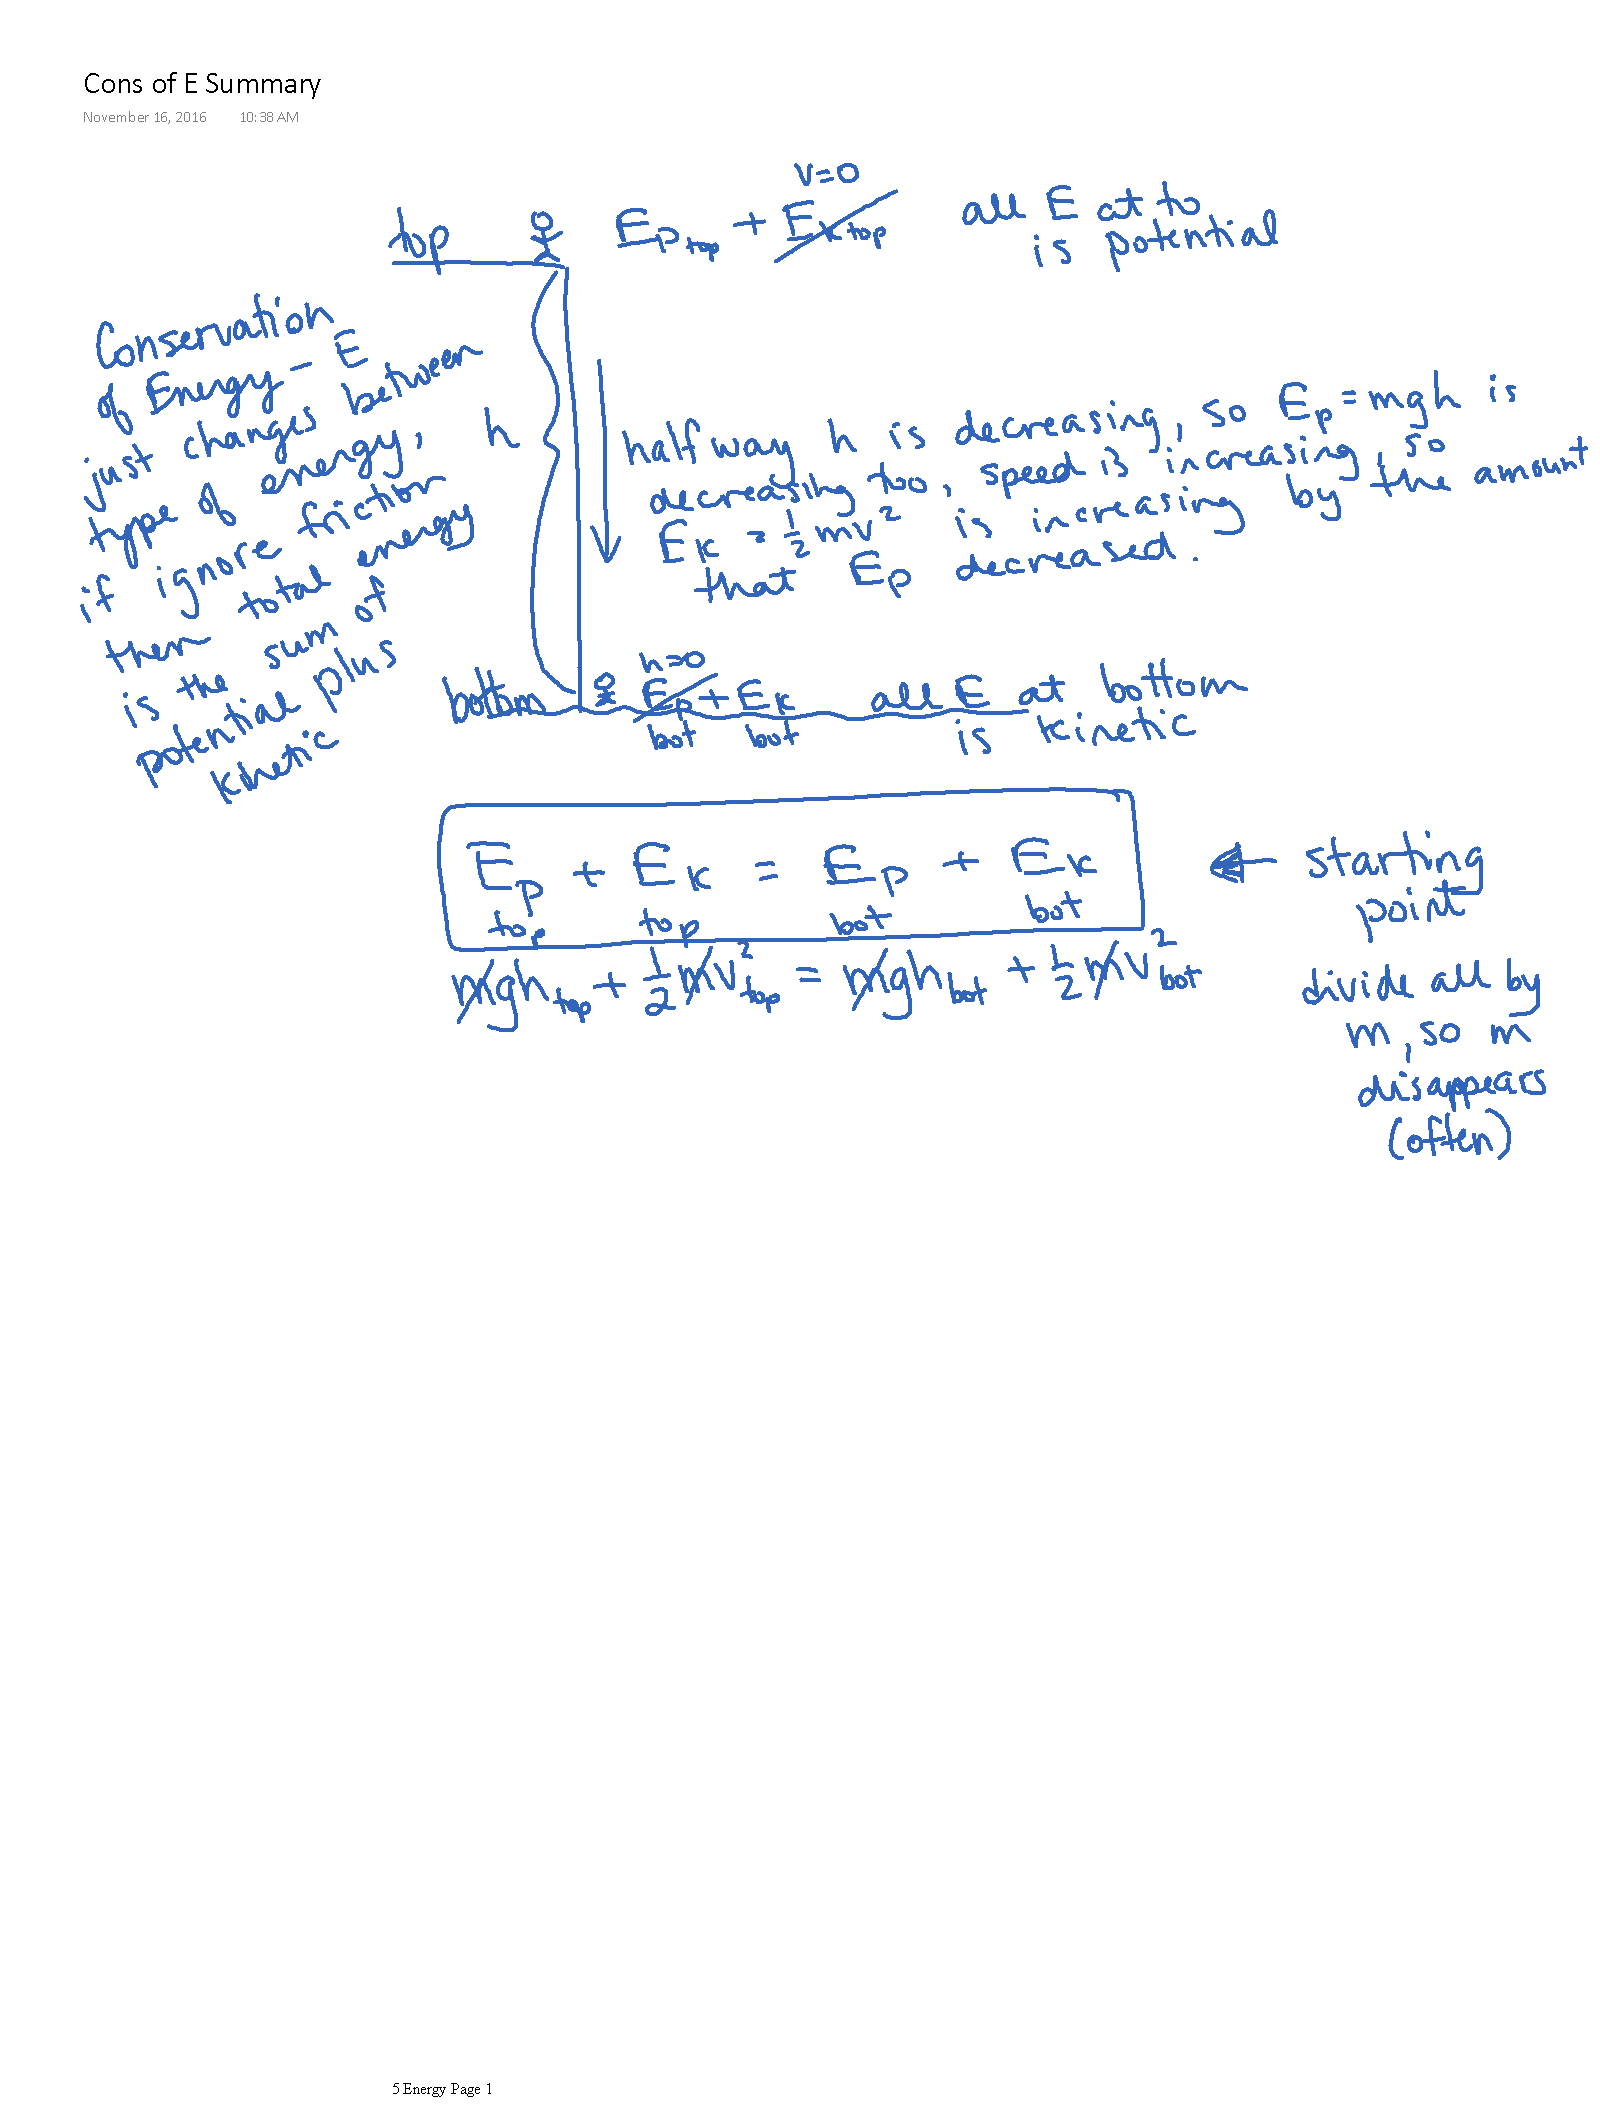 Cons of E Summary
November 16, 2016 10:38 AM
v=0
top E_p top + E_k top all E at to
is potential
Conservation
of Energy - E
just changes between
type of energy,
if ignore friction
then total energy
is the sum of
potential plus
kinetic
h
half way h is decreasing, so E_p = mgh is
decreasing too, speed is increasing, so
E_k = 1/2 mv² is increasing by the amount
that E_p decreased.
h=0
bottom E_p bot + E_k bot all E at bottom
is kinetic
E_p top + E_k top = E_p bot + E_k bot ← starting
point
mgh_top + 1/2 mv²_top = mgh_bot + 1/2 mv²_bot
divide all by
m, so m
disappears
(often)
5 Energy Page 1